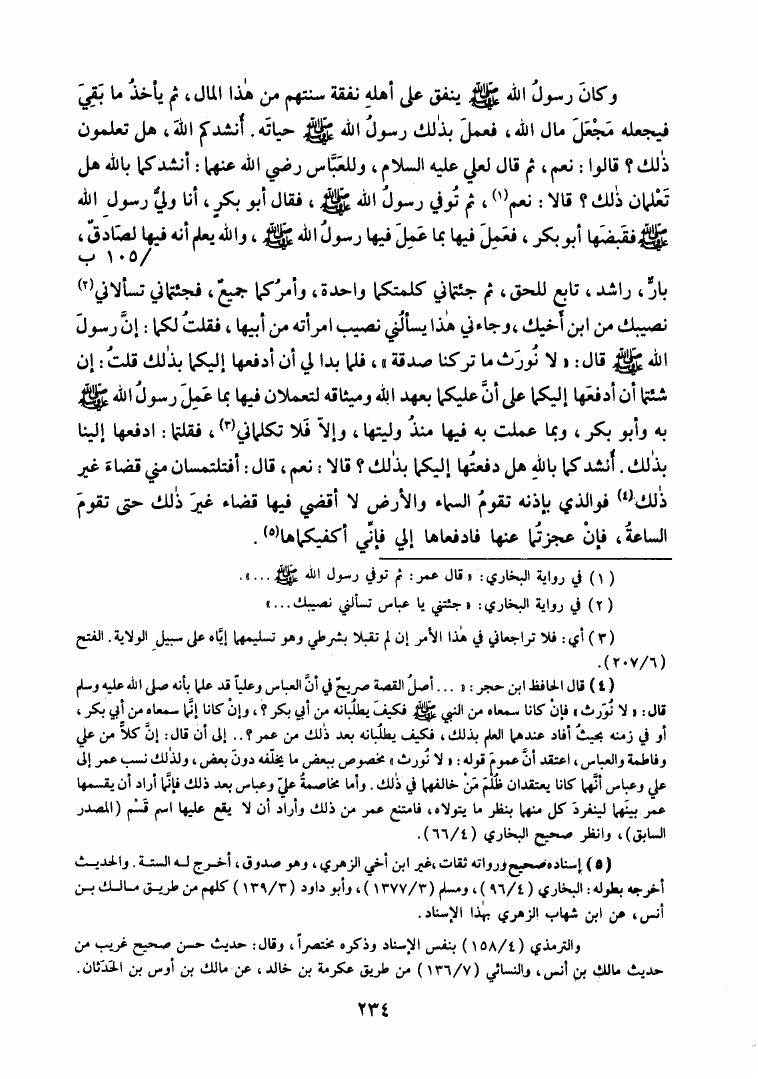 وكانَ رسولُ الله ﷺ ينفق على أهلهِ نفقة سنتهم من هٰذا المال، ثم يأخذُ ما بَقِيَ
فيجعله مَجْعَلَ مال الله، فعملَ بذٰلك رسولُ الله ﷺ حياتَه. أَنشدكم اللهَ، هل تعلمون
ذٰلك؟ قالوا: نعم، ثم قال لعلي عليه السلام، وللعَبَّاس رضي الله عنهما: أنشدكما بالله هل
تَعْلمان ذٰلك؟ قالا: نعم(١)، ثم تُوفي رسولُ الله ﷺ، فقال أبو بكرٍ، أنا وليُّ رسولِ الله
ﷺ فقبضَها أبو بكر، فعَمِلَ فيها بما عَمِلَ فيها رسولُ الله ﷺ، والله يعلم أنه فيها لصَادقٌ،
/١٠٥ ب
بارٌّ، راشد، تابع للحق، ثم جئتماني كلمتكما واحدة، وأمرُكما جميعٌ، فجئتماني تسألاني(٢)
نصيبك من ابن أخيك، وجاءني هٰذا يسألُني نصيب امرأته من أبيها، فقلتُ لكما: إنَّ رسولَ
الله ﷺ قال: « لا نُورَث ما تركنا صدقة »، فلما بدا لي أن أدفعها إليكما بذٰلك قلتُ: إن
شئتما أن أدفعَها إليكما على أنَّ عليكما بعهد الله وميثاقه لتعملان فيها بما عَمِلَ رسولُ الله ﷺ
به وأبو بكر، وبما عملت به فيها منذُ وليتها، وإلاّ فَلا تكلماني(٣)، فقلتما: ادفعها إلينا
بذٰلك. أَنشدكما باللهِ هل دفعتُها إليكما بذٰلك؟ قالا: نعم، قال: أفتلتمسان مني قضاءً غير
ذٰلك(٤) فوالذي بإذنه تقومُ السماء والأرض لا أقضي فيها قضاء غيرَ ذٰلك حتى تقومَ
الساعةُ، فإنْ عجزتُما عنها فادفعاها إلي فإنِّي أكفيكماها(٥).
(١) في رواية البخاري: « قال عمر: ثم توفي رسول الله ﷺ ...».
(٢) في رواية البخاري: « جئتني يا عباس تسألني نصيبك... »
(٣) أي: فلا تراجعاني في هٰذا الأمر إن لم تقبلا بشرطي وهو تسليمها إيَّاه على سبيل الولاية. الفتح
(٢٠٧/٦).
(٤) قال الحافظ ابن حجر: « ... أصلُ القصة صريحٌ في أنَّ العباس وعلياً قد علما بأنه صلى الله عليه وسلم
قال: « لا نُوْرث » فإنْ كانا سمعاه من النبي ﷺ فكيفَ يطلُبانه من أبي بكر؟، وإنْ كانا إنَّما سمعاه من أبي بكر،
أو في زمنه بحيثُ أفاد عندهما العلم بذلك، فكيف يطلُبانه بعد ذٰلك من عمر؟.. إلى أن قال: إنَّ كلاًّ من علي
وفاطمة والعباس، اعتقد أنَّ عمومَ قوله: « لا نُورث » مخصوص ببعض ما يخلّفه دونَ بعض، ولذلك نسب عمر إلى
علي وعباس أنَّهما كانا يعتقدان ظُلْمَ مَنْ خالفها في ذٰلك. وأما مخاصمةُ عليّ وعباس بعد ذلك فإنَّما أراد أن يقسمها
عمر بينَهما لينفردَ كل منهما بنظر ما يتولاه، فامتنع عمر من ذلك وأراد أن لا يقع عليها اسم قَسْم (المصدر
السابق)، وانظر صحيح البخاري (٦٦/٤).
(٥) إسناده صحيح ورواته ثقات، غير ابن أخي الزهري، وهو صدوق، أخرج له الستة. والحديث
أخرجه بطوله: البخاري (٩٦/٤)، ومسلم (١٣٧٧/٣)، وأبو داود (١٣٩/٣) كلهم من طريق مالك بن
أنس، عن ابن شهاب الزهري بهٰذا الإسناد.
والترمذي (١٥٨/٤) بنفس الإسناد وذكره مختصراً، وقال: حديث حسن صحيح غريب من
حديث مالك بن أنس، والنسائي (١٣٦/٧) من طريق عكرمة بن خالد، عن مالك بن أوس بن الحَدَثان.
٢٣٤